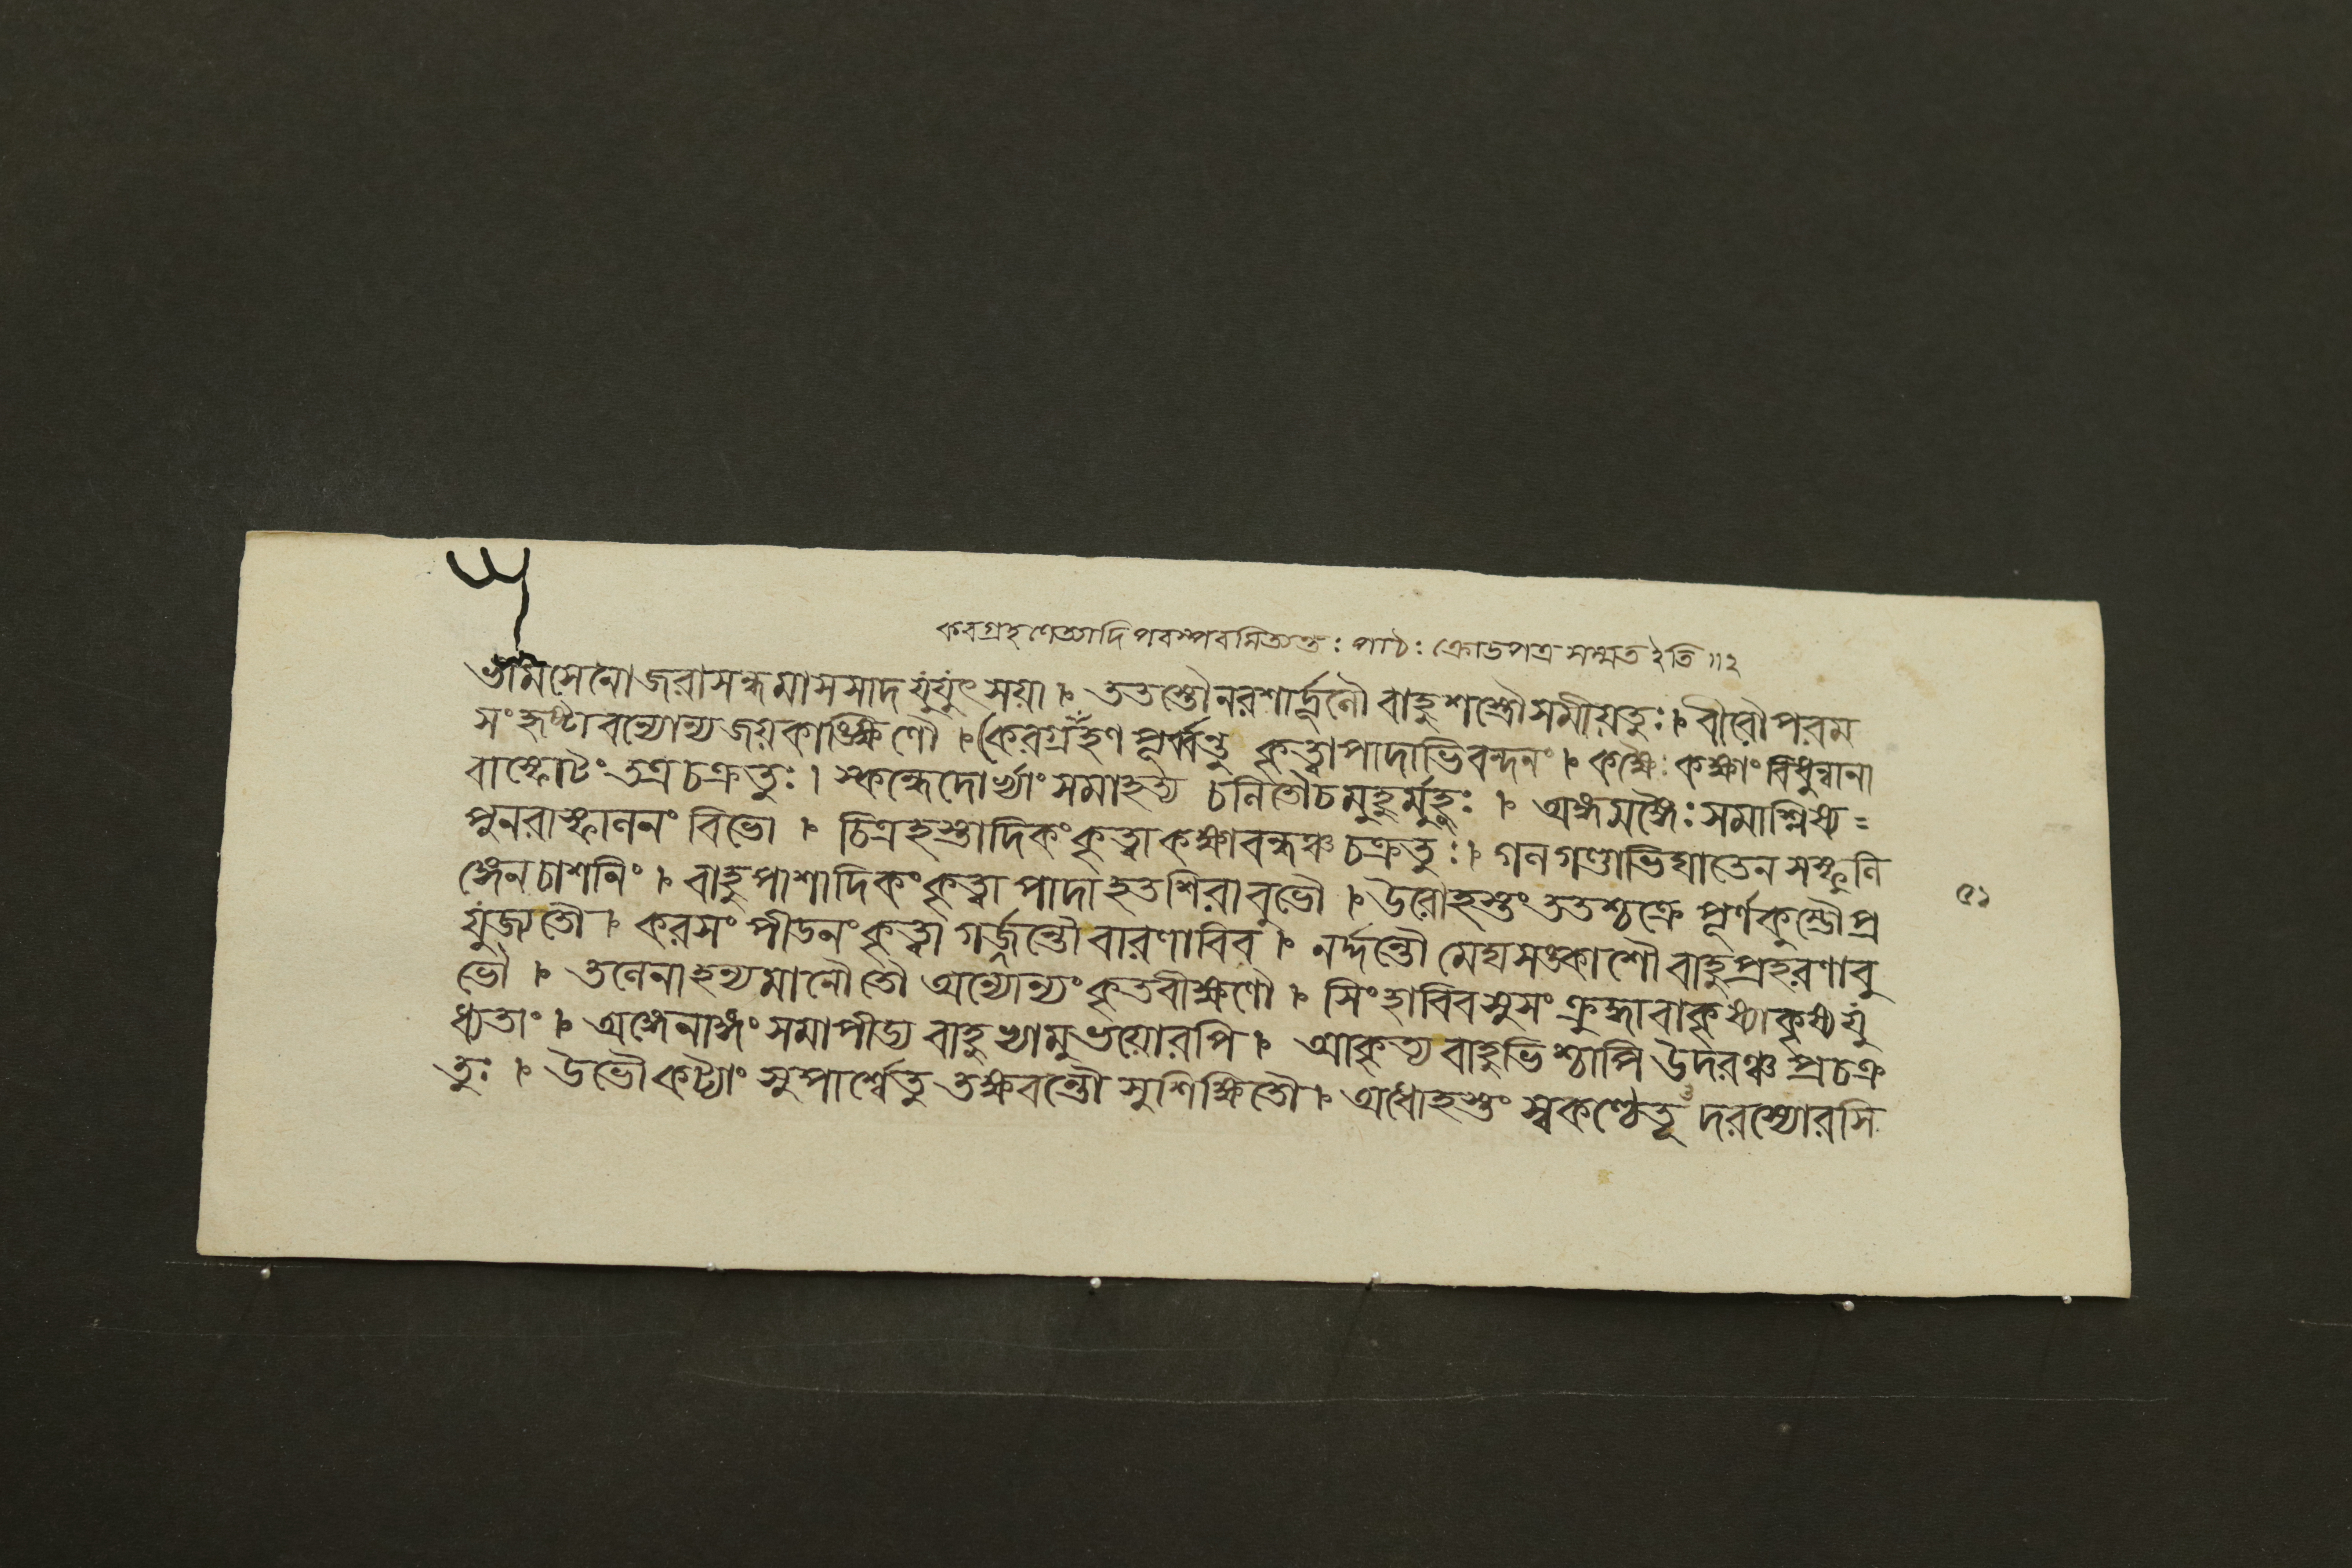 করগ্রহণেত্যাদি পরস্পরমিত্যন্তঃ পাঠঃ ক্রোডপত্র সম্মত ইতি ॥২
ভীমসেনো জরাসন্ধমাসসাদ যুযুৎসয়া । ততস্তৌ নরশার্দ্দূলৌ বাহুশস্ত্রৌ সমীয়তুঃ । বীরৌ পরম
সংহৃষ্টাবন্যোন্য জয়কাঙ্ক্ষিণৌ । (করগ্রহণ পূর্ব্বন্তু কৃত্বা পাদাভিবন্দনং । কক্ষৈঃ কক্ষাং বিধুন্বানা
বাস্ফোটং তত্র চক্রতুঃ । স্কন্ধে দোর্ভ্যাং সমাহত্য চ নিতৌ চ মুহুর্মুহুঃ । অঙ্গমঙ্গৈঃ সমাশ্লিষ্য =
পুনরাস্ফালনং বিভো । চিত্রহস্তাদিকং কৃত্বা কক্ষাবন্ধঞ্চ চক্রতুঃ । গলগণ্ডাভিঘাতেন সস্ফুলি
ঙ্গেন চাশনিং । বাহুপাশাদিকং কৃত্বা পাদাহতশিরাবুভৌ । উরোহস্তং ততশ্চক্রে পূর্ণকুম্ভৌ প্র
যুজ্য তৌ । করসংপীডনং কৃত্বা গর্জন্তৌ বারণাবিব । নর্দ্দন্তৌ মেঘসঙ্কাশৌ বাহুপ্রহরণাবু
ভৌ । তলেনাহন্যমানৌ তৌ অন্যোন্যং কৃতবীক্ষণৌ । সিংহাবিব সুসংক্রুদ্ধাবাকৃষ্যাকৃষ্য যু
ধ্যতাং । অঙ্গেনাঙ্গং সমাপীড্য বাহুভ্যামুভয়োরপি । আকৃত্য বাহুভিশ্চাপি উদরঞ্চ প্রচক্র
তুঃ । উভৌ কট্যাং সুপার্শ্বে তু তক্ষবন্তৌ সুশিক্ষিতৌ । অধোহস্তং স্বকণ্ঠে তূ দরস্যোরসি
৫১